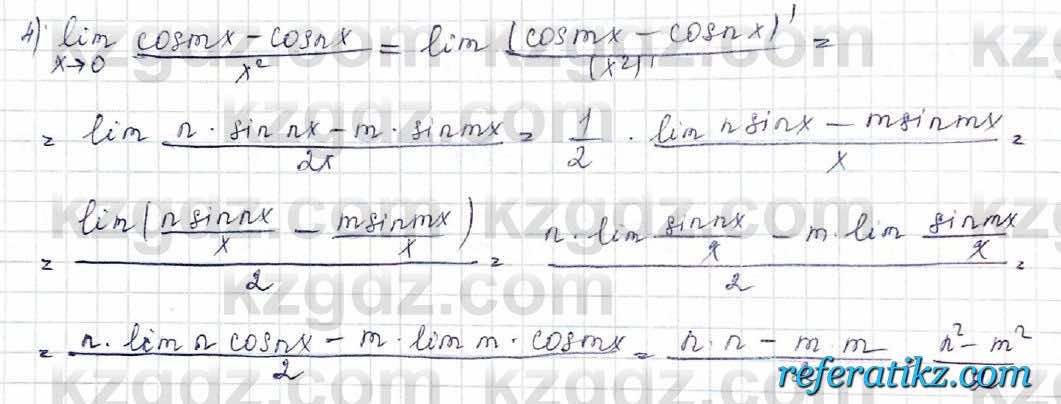 4) lim x→0 (cosmx − cosnx)/x² = lim (cosmx − cosnx)'/(x²)' =
= lim (n · sin nx − m · sinmx)/2x = 1/2 · (lim n sinx − msinmx)/x =
= lim(nsinnx/x − msinmx/x)/2 = (n · lim sinnx/x − m · lim sinmx/x)/2 =
= (n · lim n cosnx − m · lim m · cosmx)/2 = (n · n − m · m)/ = (n² − m²)/
kzgdz.com
referatikz.com